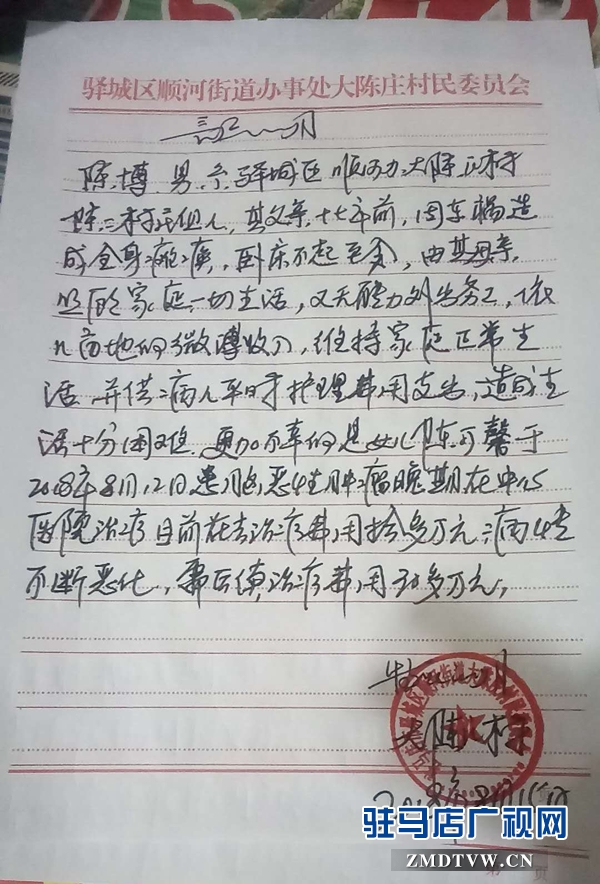 驿城区顺河街道办事处大陈庄村民委员会
证明
陈博 男 系驿城区顺河办大陈庄村
陈三村民组人,其父亲十七年前,因车祸造
成全身瘫痪,卧床不起至今,由其母亲
照顾家庭一切生活,又无能力外出务工,依
几亩地的微薄收入,维持家庭正常生
活,并供病人平时护理费用支出,造成生
活十分困难.更加不幸的是女儿陈可馨于
2018年8月12日患恶性肿瘤晚期在中心
医院治疗目前在去治疗费用拾多万元,病情
不断恶化,需后续治疗费用30多万元,
特此证明
陈村
2018年 15日
驻马店广视网
ZMDTVW.CN
第 页